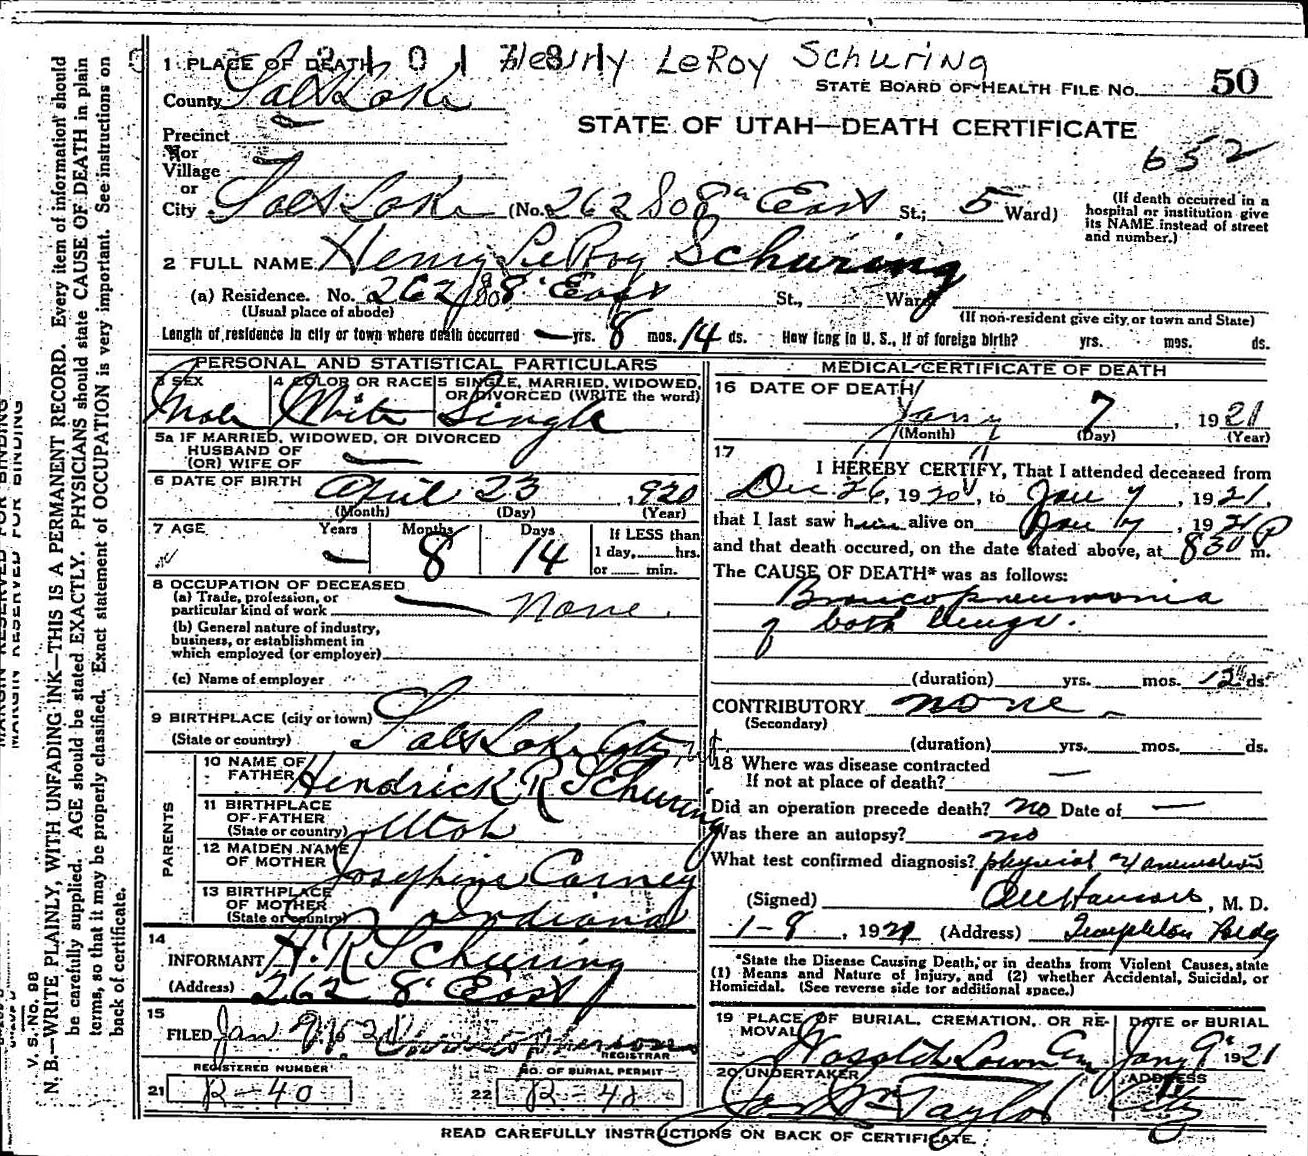 Henry LeRoy Schuring
1 PLACE OF DEATH
STATE BOARD OF HEALTH FILE NO. 50
County Salt Lake
STATE OF UTAH—DEATH CERTIFICATE
652
Precinct
or
Village
or
City Salt Lake (No. 262 So 8th East St.; 5 Ward)
(If death occurred in a hospital or institution give its NAME instead of street and number.)
2 FULL NAME Henry LeRoy Schuring
(a) Residence. No. 262 So 8 East St., Ward
(Usual place of abode)
(If non-resident give city or town and State)
Length of residence in city or town where death occurred — yrs. 8 mos. 14 ds. How long in U. S., if of foreign birth? yrs. mos. ds.
PERSONAL AND STATISTICAL PARTICULARS
3 SEX Male
4 COLOR OR RACE White
5 SINGLE, MARRIED, WIDOWED, OR DIVORCED (WRITE the word) Single
5a IF MARRIED, WIDOWED, OR DIVORCED
HUSBAND OF
(OR) WIFE OF —
6 DATE OF BIRTH April 23, 1920
(Month) (Day) (Year)
7 AGE Years — Months 8 Days 14
If LESS than
1 day, hrs.
or min.
8 OCCUPATION OF DECEASED
(a) Trade, profession, or
particular kind of work — none.
(b) General nature of industry,
business, or establishment in
which employed (or employer)
(c) Name of employer
9 BIRTHPLACE (city or town) Salt Lake City, Ut
(State or country)
PARENTS
10 NAME OF FATHER Hendrick R Schuring
11 BIRTHPLACE OF FATHER
(State or country) Utah
12 MAIDEN NAME OF MOTHER Josephine Carney
13 BIRTHPLACE OF MOTHER
(State or country) Indiana
14
INFORMANT H. R. Schuring
(Address) 262 8 East
15
FILED Jan
REGISTRAR
REGISTERED NUMBER
21 R-40
NO. OF BURIAL PERMIT
22 R-40
MEDICAL CERTIFICATE OF DEATH
16 DATE OF DEATH
Jany 7, 1921
(Month) (Day) (Year)
17
I HEREBY CERTIFY, That I attended deceased from
Dec 26, 1920, to Jan 7, 1921,
that I last saw him alive on Jan 7, 1921
and that death occured, on the date stated above, at 830 P m.
The CAUSE OF DEATH* was as follows:
Broncopneumonia
of both lungs.
(duration) yrs. mos. 12 ds.
CONTRIBUTORY none
(Secondary)
(duration) yrs. mos. ds.
18 Where was disease contracted
If not at place of death? —
Did an operation precede death? no Date of —
Was there an autopsy? no
What test confirmed diagnosis? physical examination
(Signed) , M. D.
1-8, 1921 (Address) Templeton Bldg
*State the Disease Causing Death, or in deaths from Violent Causes, state
(1) Means and Nature of Injury, and (2) whether Accidental, Suicidal, or
Homicidal. (See reverse side for additional space.)
19 PLACE OF BURIAL, CREMATION, OR REMOVAL Wasatch Lawn Cem
DATE OF BURIAL Jany 9 1921
20 UNDERTAKER Taylor
ADDRESS City
READ CAREFULLY INSTRUCTIONS ON BACK OF CERTIFICATE.
MARGIN RESERVED FOR BINDING
V. S. No. 98
N. B.—WRITE PLAINLY, WITH UNFADING INK—THIS IS A PERMANENT RECORD. Every item of information should
be carefully supplied. AGE should be stated EXACTLY. PHYSICIANS should state CAUSE OF DEATH in plain
terms, so that it may be properly classified. Exact statement of OCCUPATION is very important. See instructions on
back of certificate.